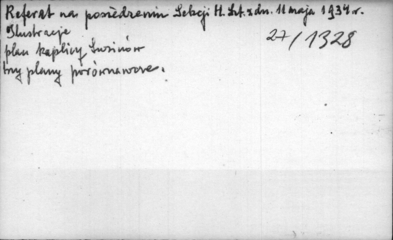 Referat na posiedzeniu Sekcji H. Szt. z dn. 11 maja 1934 r.
Ilustracje
27/1328
plan kaplicy
trzy plany porównawcze.